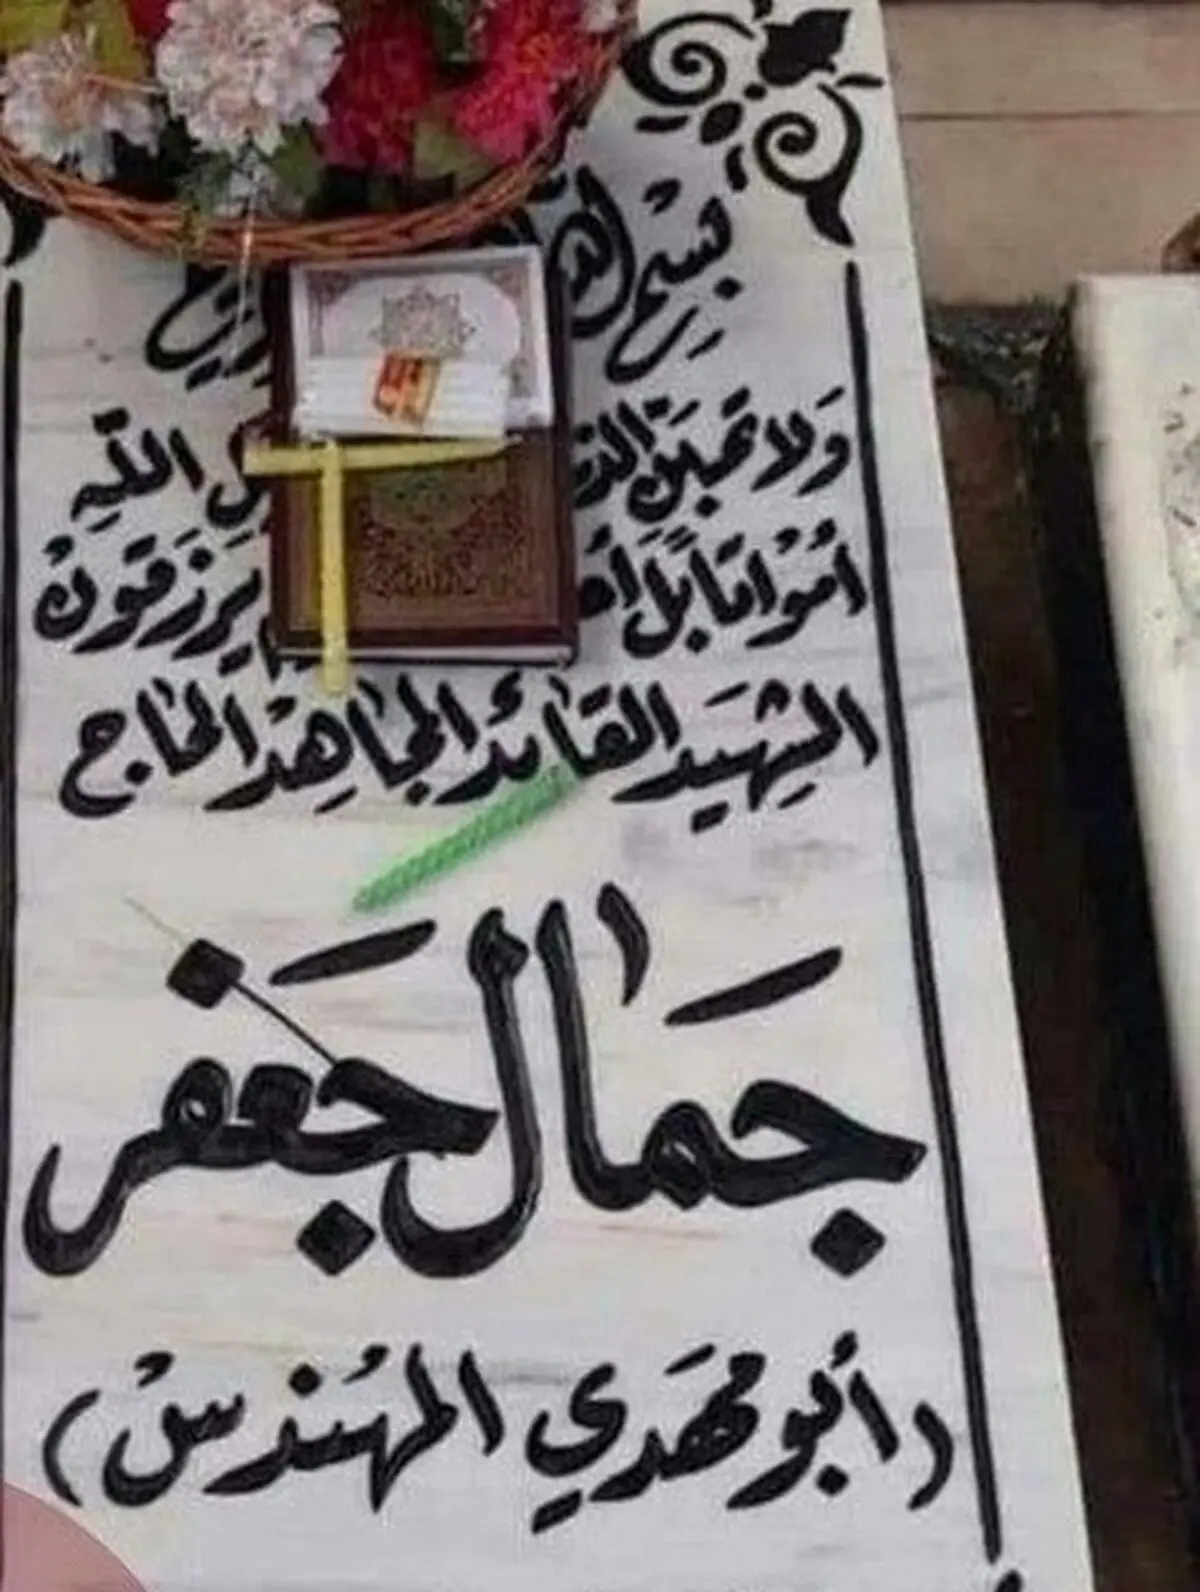 بسم
ولا تحسبن الذ الله
أمواتا بل أحـ يرزقون
الشهيد القائد المجاهد الحاج
جمال جعفر
(أبو مهدي المهندس)